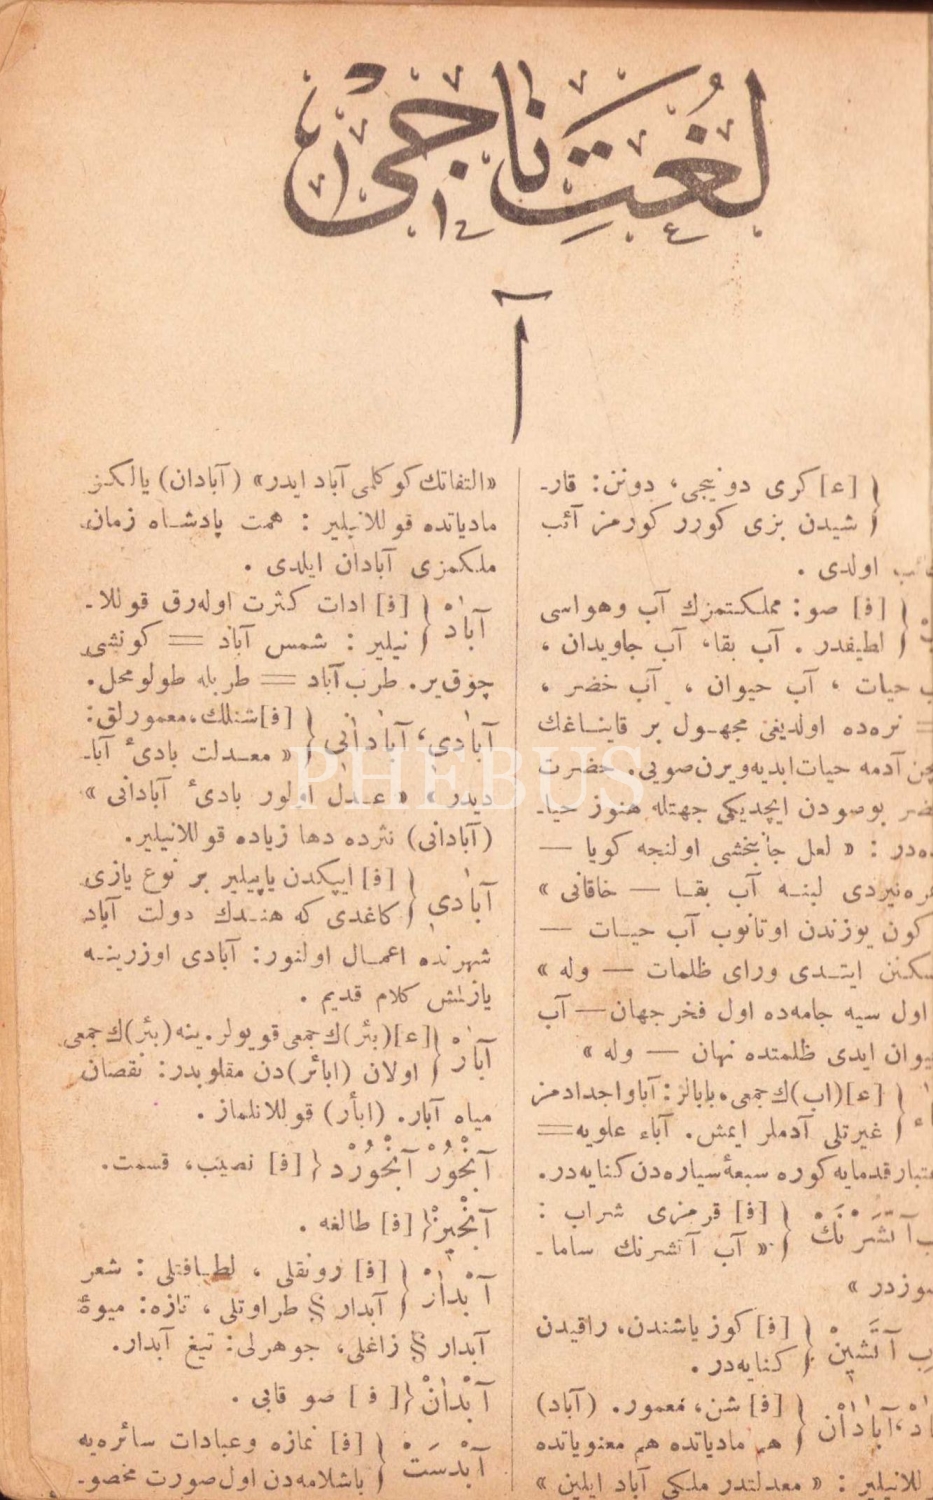 لُغَتِ نَاجِى
آ
[ع] كرى دونيجى، دونن: قار-
شيدن بزى كورر كورمز آئب
اولدى .
[ف] صو: مملكتمزك آب وهواسى
لطيفدر . آب بقا، آب جاويدان ،
حيات ، آب حيوان ، آب خضر ،
= نره‌ده اولديغى مجهـول بر قايناغك
آدمه حيات ابديه‌ويرن‌صويى. حضرت
بوصودن ايچديكى جهتله هنوز حيا-
: « لعل جانبخشى اولنجه كويا —
لبنـه آب بقـا — خاقانى »
كون يوزندن اوتانوب آب حيـات —
ايتـدى وراى ظلمات — وله »
اول سيه جامه‌ده اول فخر جهان — آب
ايدى ظلمتده نهان — وله »
[ع](اب)ك جمعى. بابالر: آباواجدادمز
غيرتلى آدملر ايمش. آباء علويه =
قدمايه كوره سبعۀ سياره‌دن كنايه‌در.
آتَشْرَنْكْ [ف] قرمزى شراب :
« آب آتشرنك ساما-
سوزدر »
آتَشِينْ [ف] كوز ياشندن، راقيدن
كنايه‌در .
آبَادَانْ [ف] شن، معمور. (آباد)
هم مادياتده هم معنوياتده
: « معدلتدر ملكى آباد ايلين »
«التفاتك كوكلمى آباد ايدر» (آبادان) يالكز
مادياتده قوللانيلير : همت پادشـاه زمان
ملكمزى آبادان ايلدى .
آبَادْ [ف] ادات كثرت اوله‌رق قوللا-
نيلير : شمس آباد = كونشى
چوق‌ير. طرب‌آباد = طربله طولو محل.
آبَادِى، آبَادَانِى [ف] شنلك، معمورلق:
« معـدلت بادىٔ آبا-
ديدر » « عـدل اولور بادىٔ آبادانى »
(آبادانى) نثرده دها زياده قوللانيلير.
آبَادِى [ف] ايپكدن ياپيلير بر نوع يازى
كاغدى كه هنـدك دولت آباد
شهرنده اعمـال اولنور: آبادى اوزرينـه
يازلمش كلام قديم .
آبَارْ [ع] (بئر)ك جمعى قويولر. ينه (بئر)ك جمعى
اولان (ابائر)دن مقلوبدر: نقصان
مياه آبار. (ابأر) قوللانلماز .
آبْخُورْ آبْخُورْد [ف] نصيب، قسمت.
آبْخِيزْ [ف] طالغه .
آبْدَارْ [ف] رونقلى ، لطـافتلى : شعر
آبدار § طراوتلى ، تازه: ميوۀ
آبدار § زاغلى، جوهرلى: تيغ آبدار.
آبْدَانْ [ ف ] صو قابى .
آبْدَسْت [ف] نمازه وعبادات سائره‌يه
باشلامه‌دن اول صورت مخصو-
PHEBUS